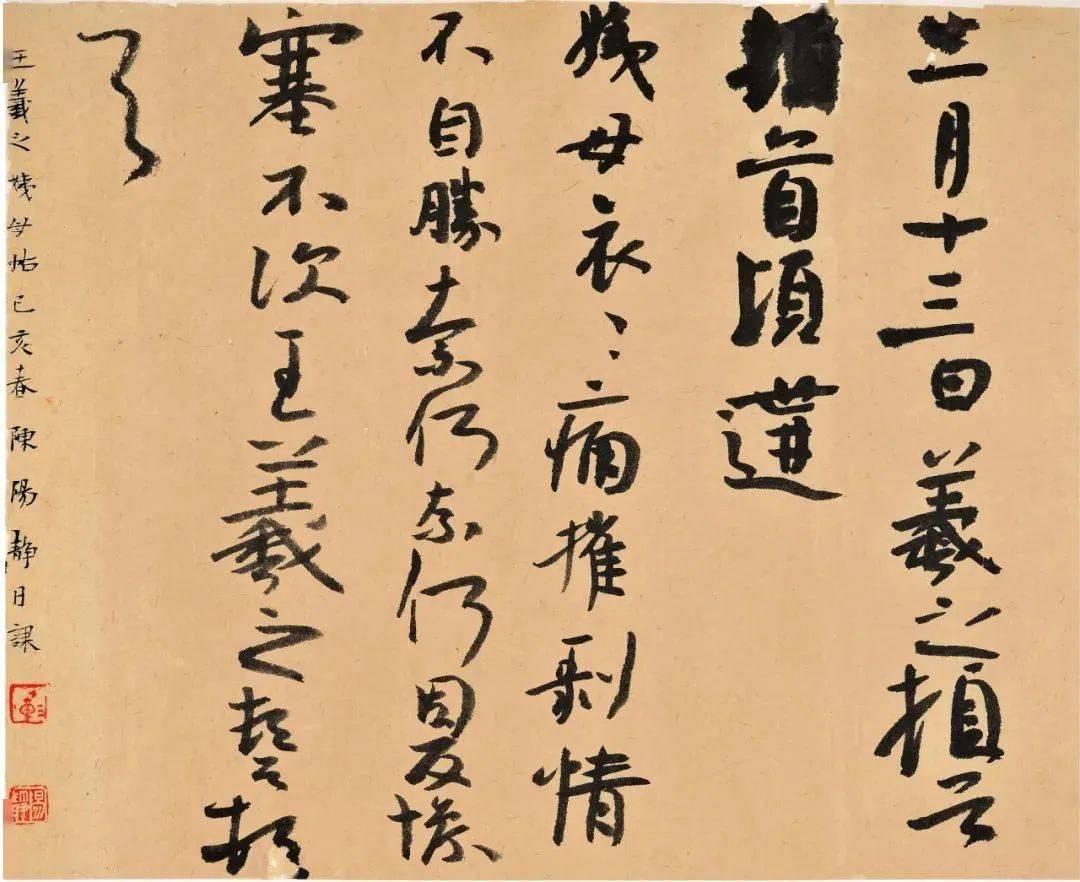 十一月十三日羲之頓首
頓首頃遘
姨母哀〻痛摧剝情
不自勝奈何奈何因反慘
塞不次王羲之頓首頓
首
王羲之姨母帖己亥春陳陽靜日課